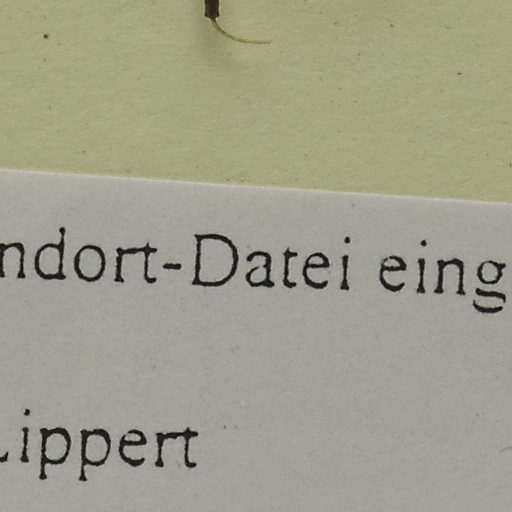 ndort-Datei eing
Lippert